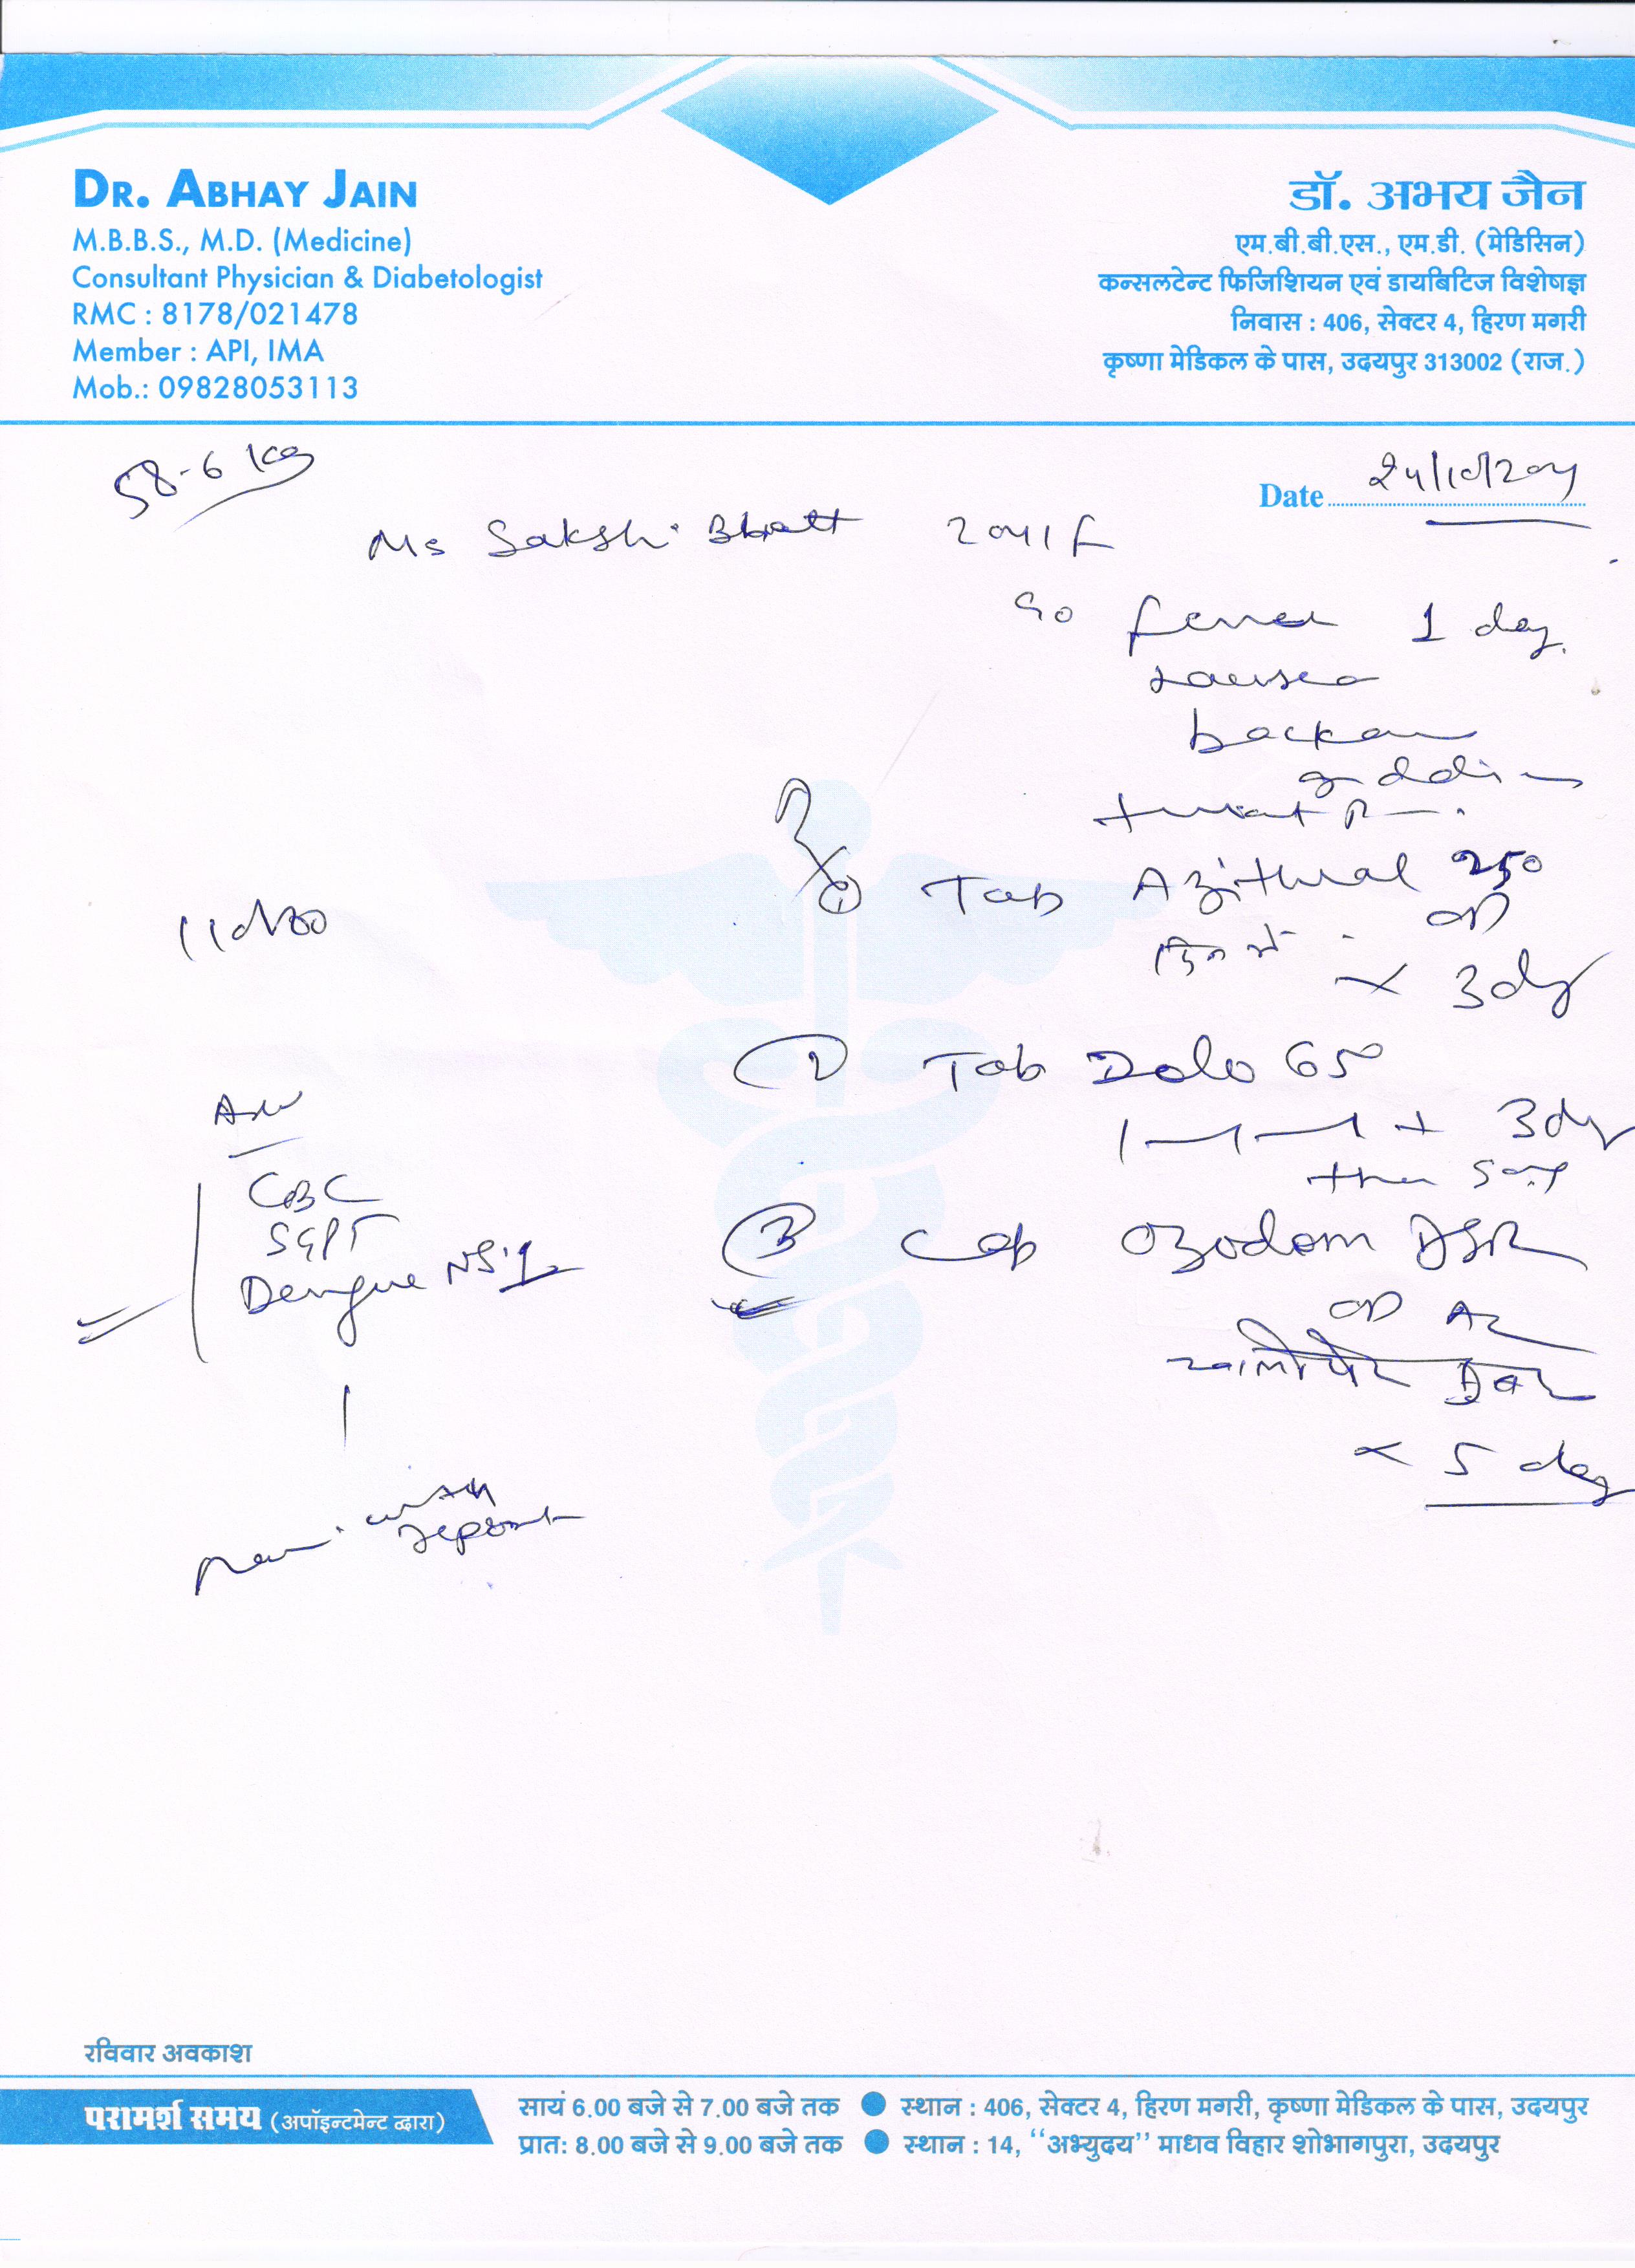 DR. ABHAY JAIN
M.B.B.S., M.D. (Medicine)
Consultant Physician & Diabetologist
RMC : 8178/021478
Member : API, IMA
Mob.: 09828053113
डॉ. अभय जैन
एम.बी.बी.एस., एम.डी. (मेडिसिन)
कन्सलटेन्ट फिजिशियन एवं डायबिटिज विशेषज्ञ
निवास : 406, सेक्टर 4, हिरण मगरी
कृष्णा मेडिकल के पास, उदयपुर 313002 (राज.)
58-6 kg
Date
Ms Sakshi Bhatt
fever 1 day
nausea
Tab Azithral 250
OD
x 3dy
Tab Dolo 650
3dy
CBC
SGPT
Dengue NS1
3 Cap Ozodom DSR
OD
खाली पेट
x 5 day
with
report
रविवार अवकाश
परामर्श समय (अपॉइन्टमेन्ट द्वारा)
सायं 6.00 बजे से 7.00 बजे तक ● स्थान : 406, सेक्टर 4, हिरण मगरी, कृष्णा मेडिकल के पास, उदयपुर
प्रात: 8.00 बजे से 9.00 बजे तक ● स्थान : 14, ‘‘अभ्युदय’’ माधव विहार शोभागपुरा, उदयपुर